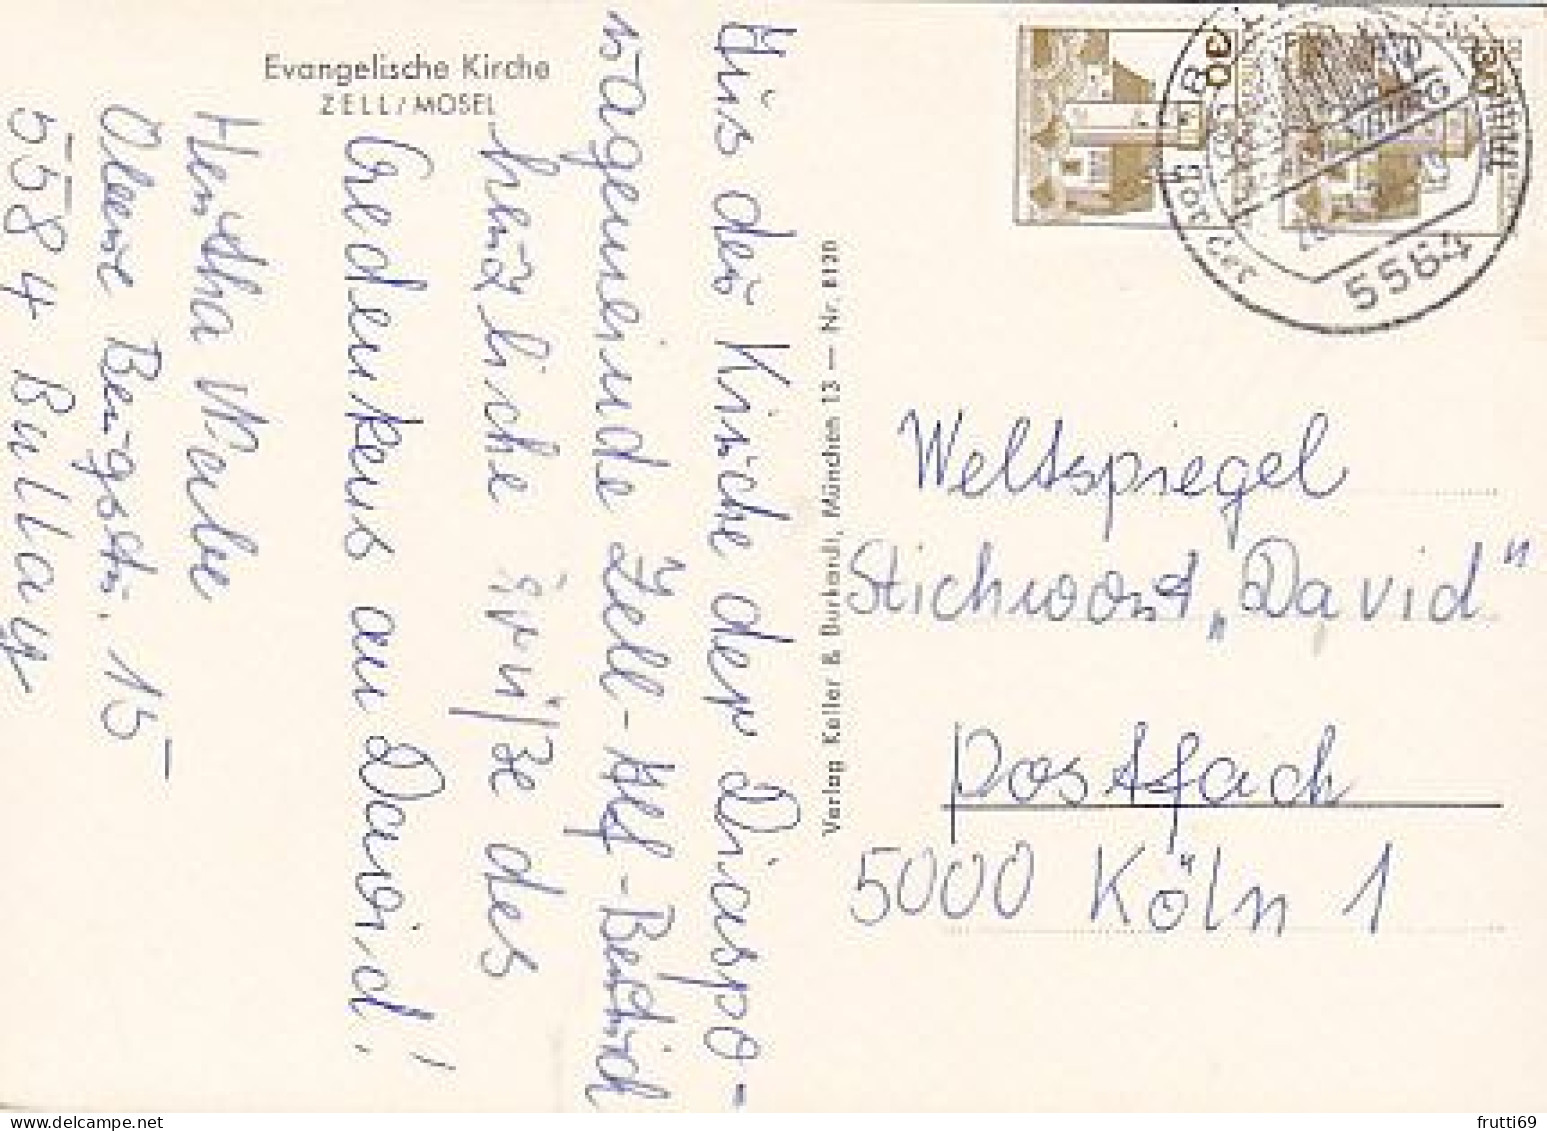 Evangelische Kirche
ZELL/MOSEL
Aus der Kirche der Diaspo-
ragemeinde Zell-Alf-
herzliche Grüße des
Gedenkens an David!
Hertha
15
5584 Bullay
Verlag Keller & Burkardt, München 13 — Nr. 8120
30
5584
Weltspiegel
Stichwort „David"
Postfach
5000 Köln 1
frutti69